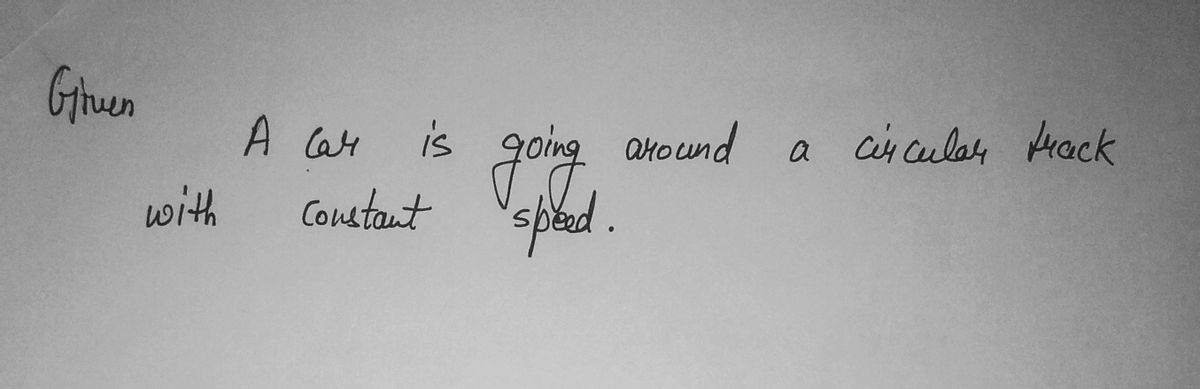 Given
A car is going around a circular track
with constant speed.